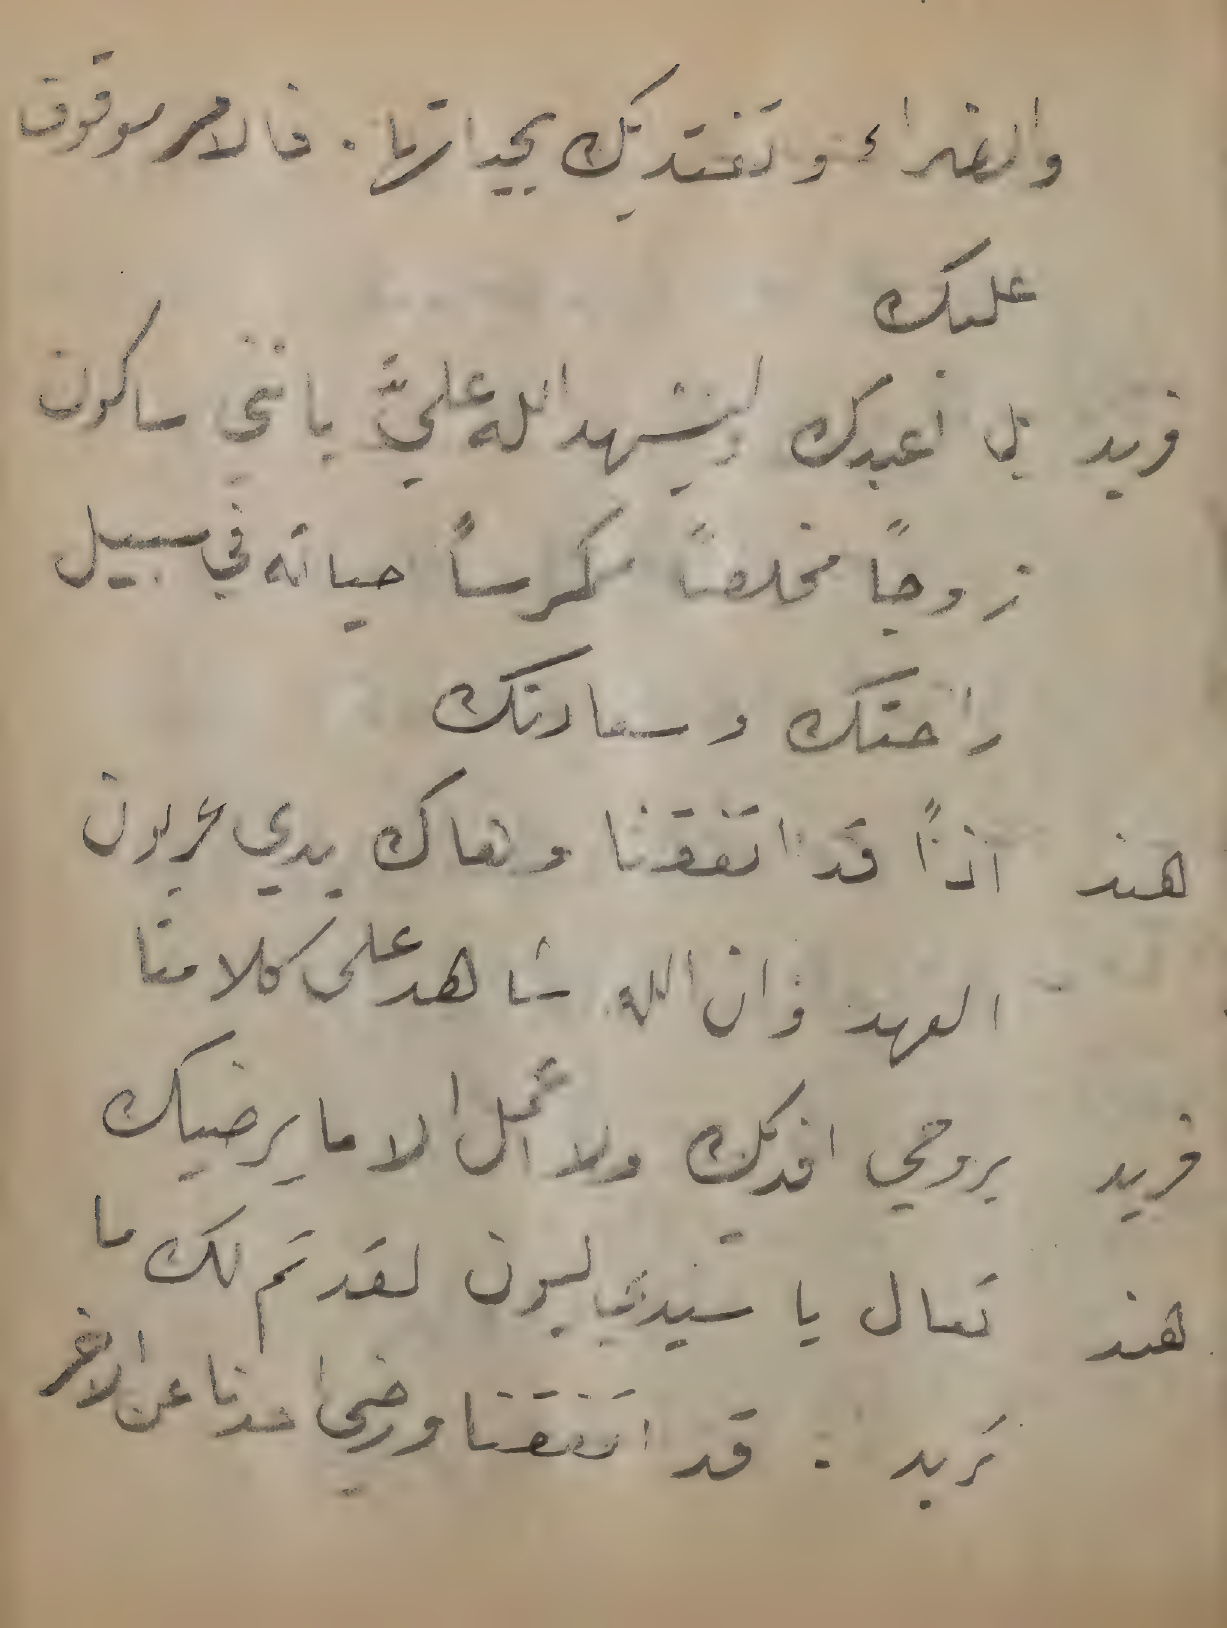 والضراء وتفتديك بحياتها . فالامر موقوف
عليك
فريد بل اعبدك وليشهد الله عليَّ بانني ساكون
زوجاً مخلصاً مكرساً حياته في سبيل
راحتك وسعادتك
هند اذاً قد اتفقنا وهاك يدي عربون
العهد وان الله شاهد على كلامنا
فريد بروحي افديك ولا اعمل الا ما يرضيك
هند تعال يا سيدي ليون لقد تم لك ما
تريد . قد اتفقنا ورضي احدنا عن الاخر